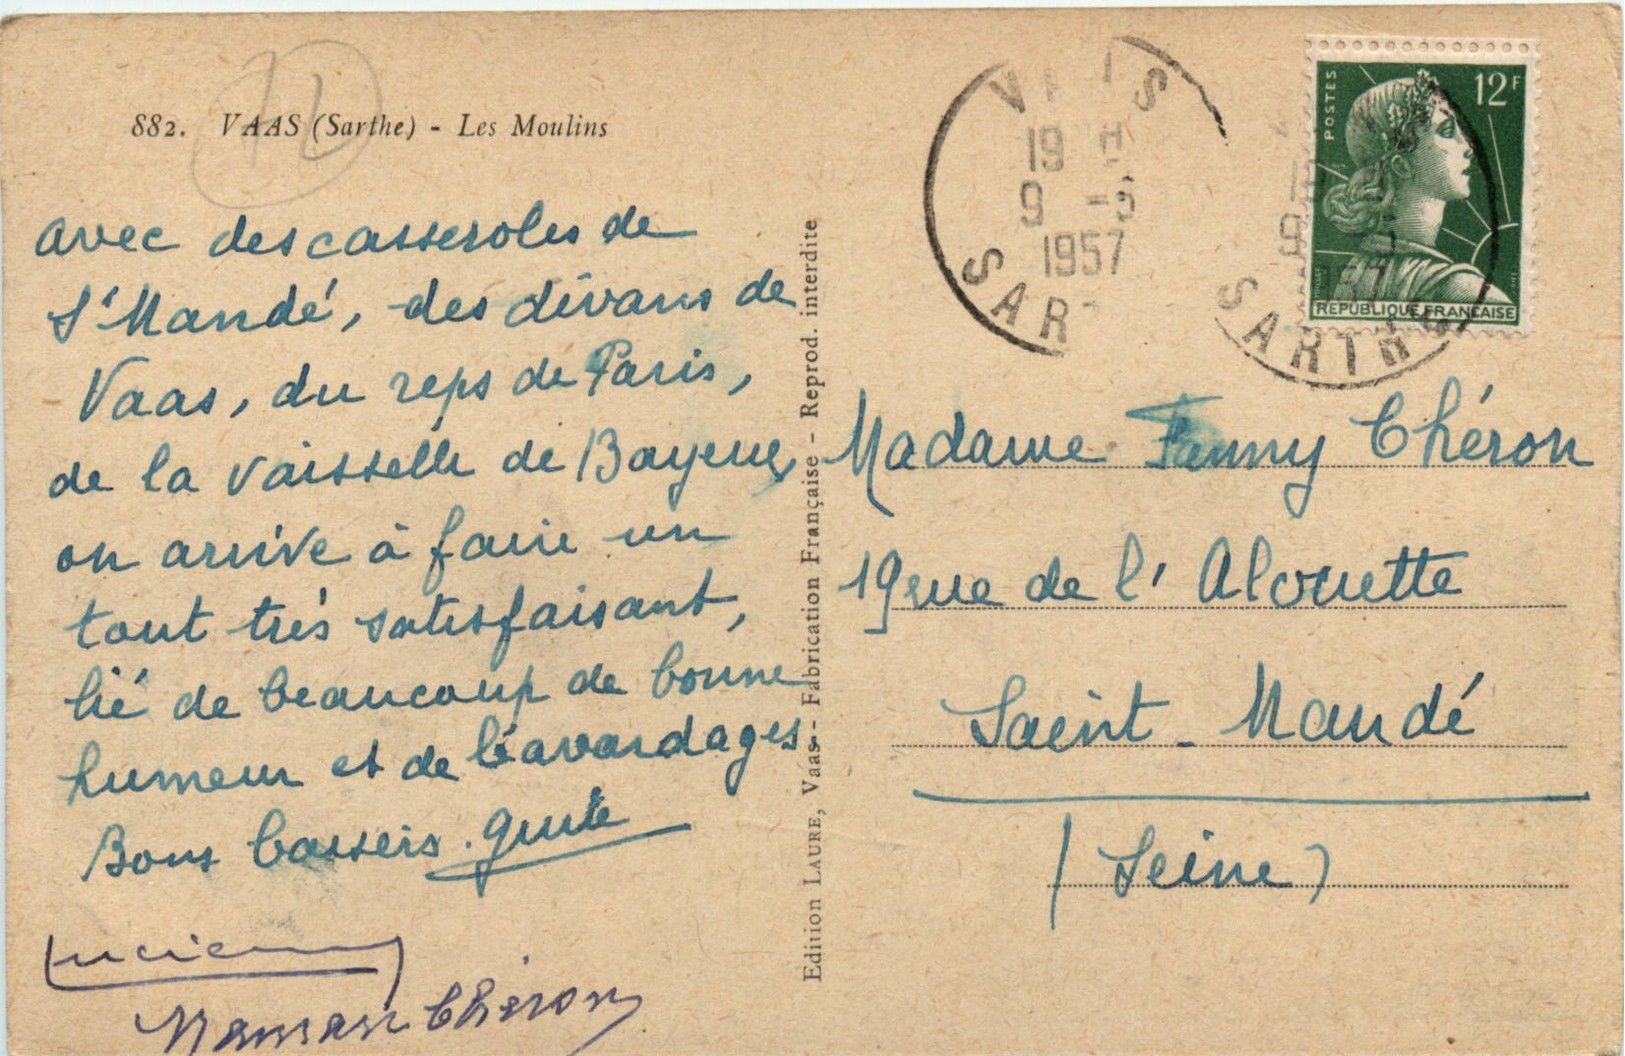 882. VAAS (Sarthe) - Les Moulins
avec des casseroles de
St Mandé, des divans de
Vaas, du reps de Paris,
de la vaisselle de Bayeux,
on arrive à faire un
tout très satisfaisant,
lié de beaucoup de bonne
humeur et de bavardages
Bons baisers.
Lucienne
Maman Chéron
Edition LAURE, Vaas - Fabrication Française - Reprod. interdite
SARTHE
19 H
9 -
1957
SART
POSTES
12F
REPUBLIQUE FRANÇAISE
Madame Fanny Chéron
19 rue de l'Alouette
Saint-Mandé
(Seine)